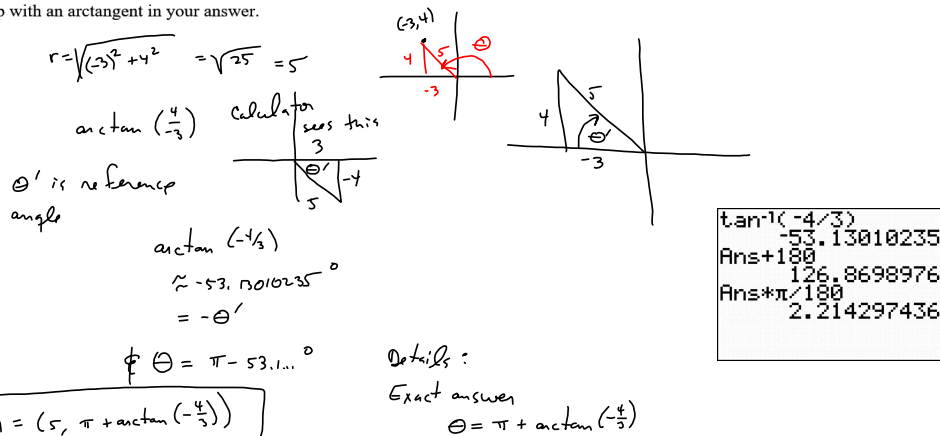 p with an arctangent in your answer.
r = √((-3)² + 4²) = √25 = 5
(-3,4)
4
5
θ
-3
arctan (4/-3)
calculator
sees this
3
θ'
-4
5
4
5
θ'
-3
θ' is reference
angle
arctan (-4/3)
≈ -53.13010235°
= -θ'
θ = π - 53.1...°
= (5, π + arctan(-4/3))
Details:
Exact answer
θ = π + arctan(-4/3)
tan⁻¹(-4/3)
-53.13010235
Ans+180
126.8698976
Ans*π/180
2.214297436